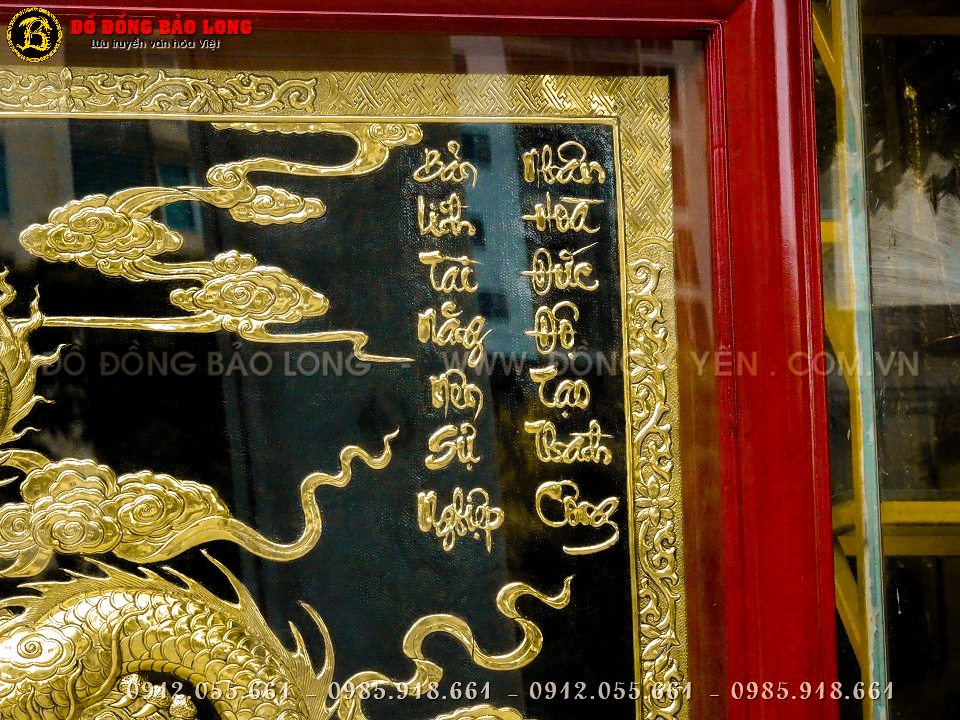 ĐỒ ĐỒNG BẢO LONG
Lưu truyền văn hóa Việt
Bản Lĩnh Tài Năng Nên Sự Nghiệp
Nhân Hoà Đức Độ Tạo Thành Công
ĐỒ ĐỒNG BẢO LONG - WWW. COM.VN
0912.055.661 - 0985.918.661 - 0912.055.661 - 0985.918.661